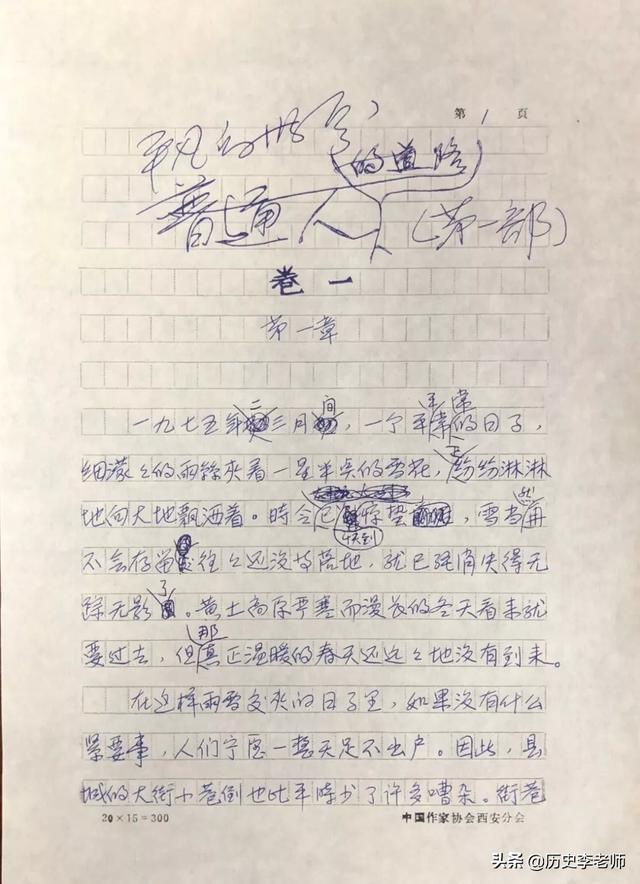 第 1 页
平凡的世界
的道路
普通人
(第一部)
卷一
第一章
二 间 平常
一九七五年三月,一个平常的日子,
细濛々的雨丝夹着一星半点的雪花,正纷纷淋淋
地向大地飘洒着。時令已快到惊蛰,雪当然再
不会存留,往々还没等落地,就已经消失得无
踪无影了。黄土高原严寒而漫长的冬天看来就
要过去,但那真正温暖的春天还远々地没有到来。
在这样雨雪交夹的日子里,如果没有什么
紧要事,人们宁愿一整天足不出户。因此,县
城的大街小巷倒也比平時少了许多嘈杂。街巷
20×15=300
中国作家协会西安分会
头条 @历史李老师